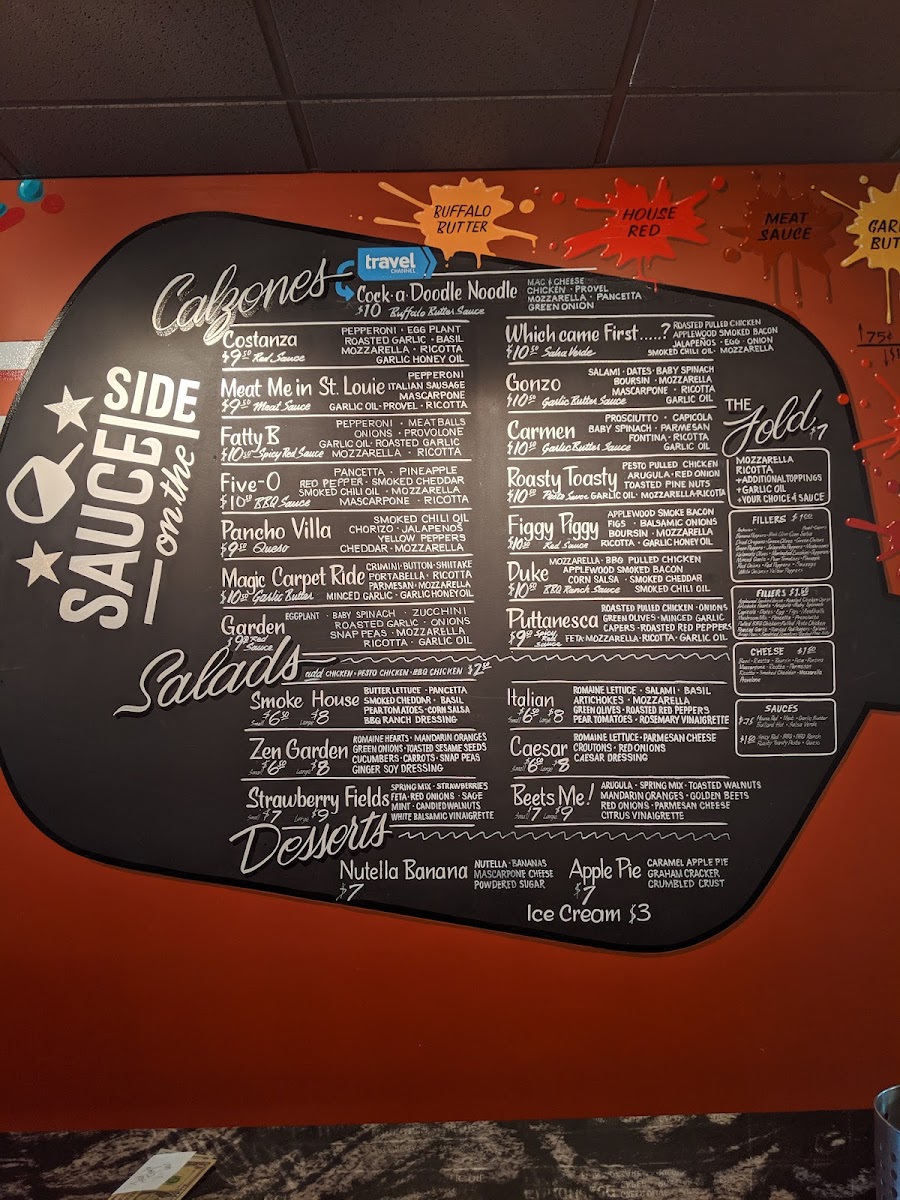 BUFFALO
BUTTER
HOUSE
RED
MEAT
SAUCE
75¢
SAUCE
on the
SIDE
Calzones
travel
CHANNEL
Cock·a·Doodle Noodle
$10 Buffalo Butter Sauce
MAC & CHEESE
CHICKEN · PROVEL
MOZZARELLA · PANCETTA
GREEN ONION
Costanza
$9.50 Red Sauce
PEPPERONI · EGG PLANT
ROASTED GARLIC · BASIL
MOZZARELLA · RICOTTA
GARLIC HONEY OIL
Meat Me in St. Louie
$9.50 Meat Sauce
PEPPERONI
ITALIAN SAUSAGE
MASCARPONE
GARLIC OIL · PROVEL · RICOTTA
Fatty B
$10.50 Spicy Red Sauce
PEPPERONI · MEATBALLS
ONIONS · PROVOLONE
GARLIC OIL · ROASTED GARLIC
MOZZARELLA · RICOTTA
Five-O
$10.50 BBQ Sauce
PANCETTA · PINEAPPLE
RED PEPPER · SMOKED CHEDDAR
SMOKED CHILI OIL · MOZZARELLA
MASCARPONE · RICOTTA
Pancho Villa
$9.50 Queso
SMOKED CHILI OIL
CHORIZO · JALAPEÑOS
YELLOW PEPPERS
CHEDDAR · MOZZARELLA
Magic Carpet Ride
$10.50 Garlic Butter
CRIMINI · BUTTON · SHIITAKE
PORTABELLA · RICOTTA
PARMESAN · MOZZARELLA
MINCED GARLIC · GARLIC HONEY OIL
Garden
Red
Sauce
EGGPLANT · BABY SPINACH · ZUCCHINI
ROASTED GARLIC · ONIONS
SNAP PEAS · MOZZARELLA
RICOTTA · GARLIC OIL
Which came First.....?
$10.50 Salsa Verde
ROASTED PULLED CHICKEN
APPLEWOOD SMOKED BACON
JALAPEÑOS · EGG · ONION
SMOKED CHILI OIL · MOZZARELLA
Gonzo
$10.50 Garlic Butter Sauce
SALAMI · DATES · BABY SPINACH
BOURSIN · MOZZARELLA
MASCARPONE · RICOTTA
GARLIC HONEY OIL
Carmen
$10.50 Garlic Butter Sauce
PROSCIUTTO · CAPICOLA
BABY SPINACH · PARMESAN
FONTINA · RICOTTA
GARLIC OIL
Roasty Toasty
$10.50 Pesto Sauce
PESTO PULLED CHICKEN
ARUGULA · RED ONION
TOASTED PINE NUTS
GARLIC OIL · MOZZARELLA · RICOTTA
Figgy Piggy
$10.50 Red Sauce
APPLEWOOD SMOKE BACON
FIGS · BALSAMIC ONIONS
BOURSIN · MOZZARELLA
RICOTTA · GARLIC HONEY OIL
Duke
$10.50 BBQ Ranch Sauce
MOZZARELLA · BBQ PULLED CHICKEN
APPLEWOOD SMOKED BACON
CORN SALSA · SMOKED CHEDDAR
SMOKED CHILI OIL
Puttanesca
$9.50 Spicy
Red
Sauce
ROASTED PULLED CHICKEN · ONIONS
GREEN OLIVES · MINCED GARLIC
CAPERS · ROASTED RED PEPPERS
FETA · MOZZARELLA · RICOTTA · GARLIC OIL
THE
Fold
$7
MOZZARELLA
RICOTTA
+ADDITIONAL TOPPINGS
+GARLIC OIL
+YOUR CHOICE of SAUCE
FILLERS $1.00
FILLERS $1.50
CHEESE $1.50
SAUCES
Salads
add CHICKEN · PESTO CHICKEN · BBQ CHICKEN $2.50
Smoke House
Small $6.50 Large $8
BUTTER LETTUCE · PANCETTA
SMOKED CHEDDAR · BASIL
PEAR TOMATOES · CORN SALSA
BBQ RANCH DRESSING
Zen Garden
Small $6.50 Large $8
ROMAINE HEARTS · MANDARIN ORANGES
GREEN ONIONS · TOASTED SESAME SEEDS
CUCUMBERS · CARROTS · SNAP PEAS
GINGER SOY DRESSING
Strawberry Fields
Small $7 Large $9
SPRING MIX · STRAWBERRIES
FETA · RED ONIONS · SAGE
MINT · CANDIED WALNUTS
WHITE BALSAMIC VINAIGRETTE
Italian
Small $6.50 Large $8
ROMAINE LETTUCE · SALAMI · BASIL
ARTICHOKES · MOZZARELLA
GREEN OLIVES · ROASTED RED PEPPERS
PEAR TOMATOES · ROSEMARY VINAIGRETTE
Caesar
Small $6.50 Large $8
ROMAINE LETTUCE · PARMESAN CHEESE
CROUTONS · RED ONIONS
CAESAR DRESSING
Beets Me!
Small $7 Large $9
ARUGULA · SPRING MIX · TOASTED WALNUTS
MANDARIN ORANGES · GOLDEN BEETS
RED ONIONS · PARMESAN CHEESE
CITRUS VINAIGRETTE
Desserts
Nutella Banana
$7
NUTELLA · BANANAS
MASCARPONE CHEESE
POWDERED SUGAR
Apple Pie
$7
CARAMEL APPLE PIE
GRAHAM CRACKER
CRUMBLED CRUST
Ice Cream $3